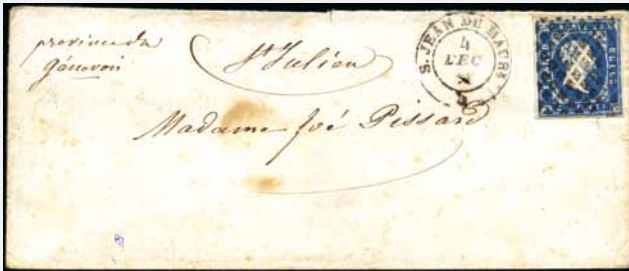 province du
Génevois
St Julien
S. JEAN DE MAUR
4
DEC
Madame
Pissard